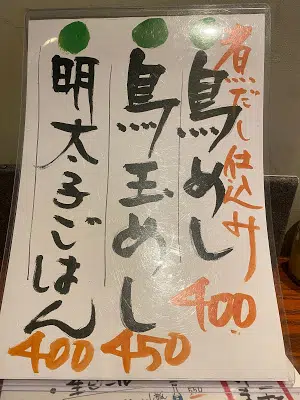 煮だし仕込み
鳥めし
400
鳥玉めし
450
明太子ごはん
400